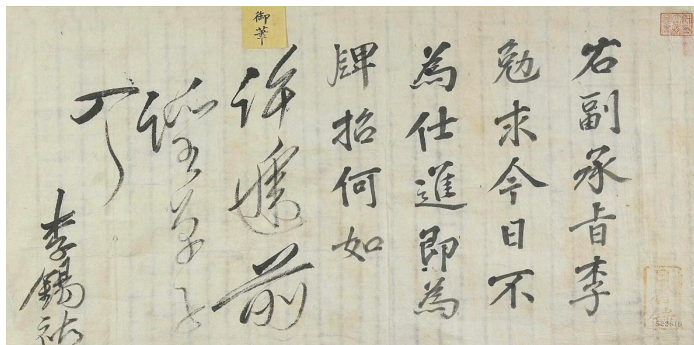 右副承旨李
勉求今日不
為仕進即為
牌招何如
御筆
許遞前
李錫祐